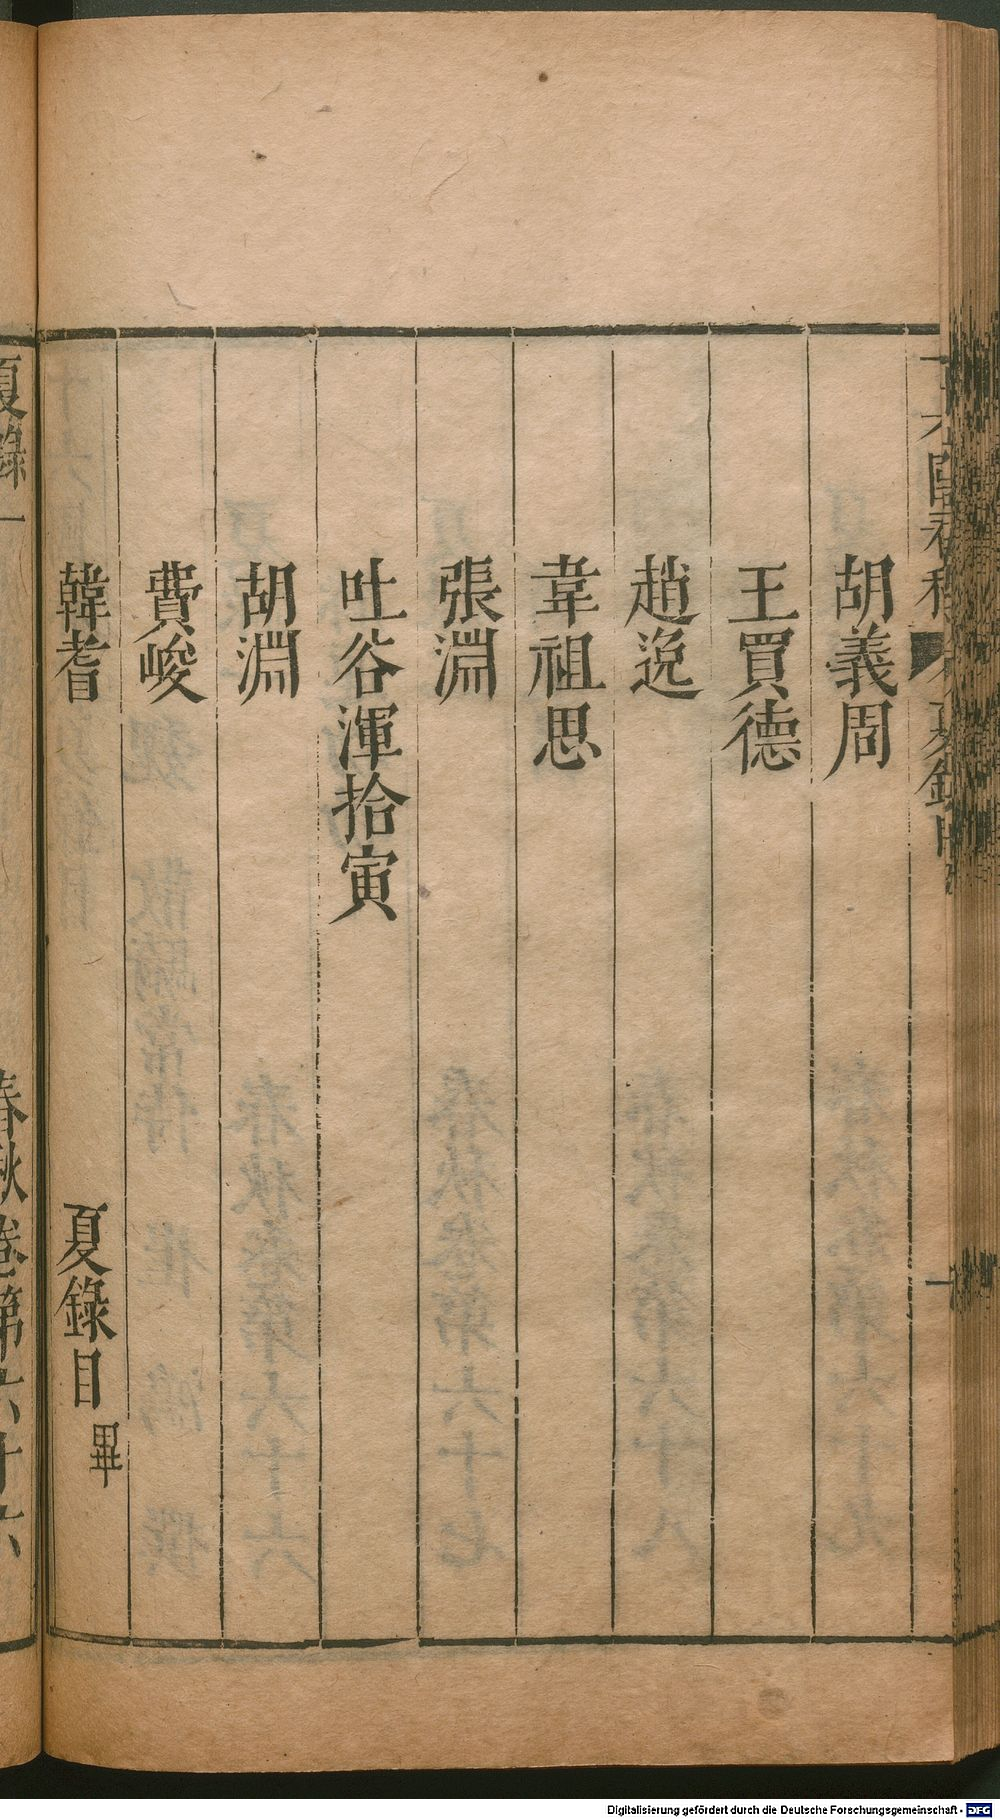 胡義周
王買德
趙逸
韋祖思
張淵
吐谷渾拾寅
胡淵
費峻
韓耉
夏錄目畢
夏錄一
春秋卷第六十六
Digitalisierung gefördert durch die Deutsche Forschungsgemeinschaft - DFG